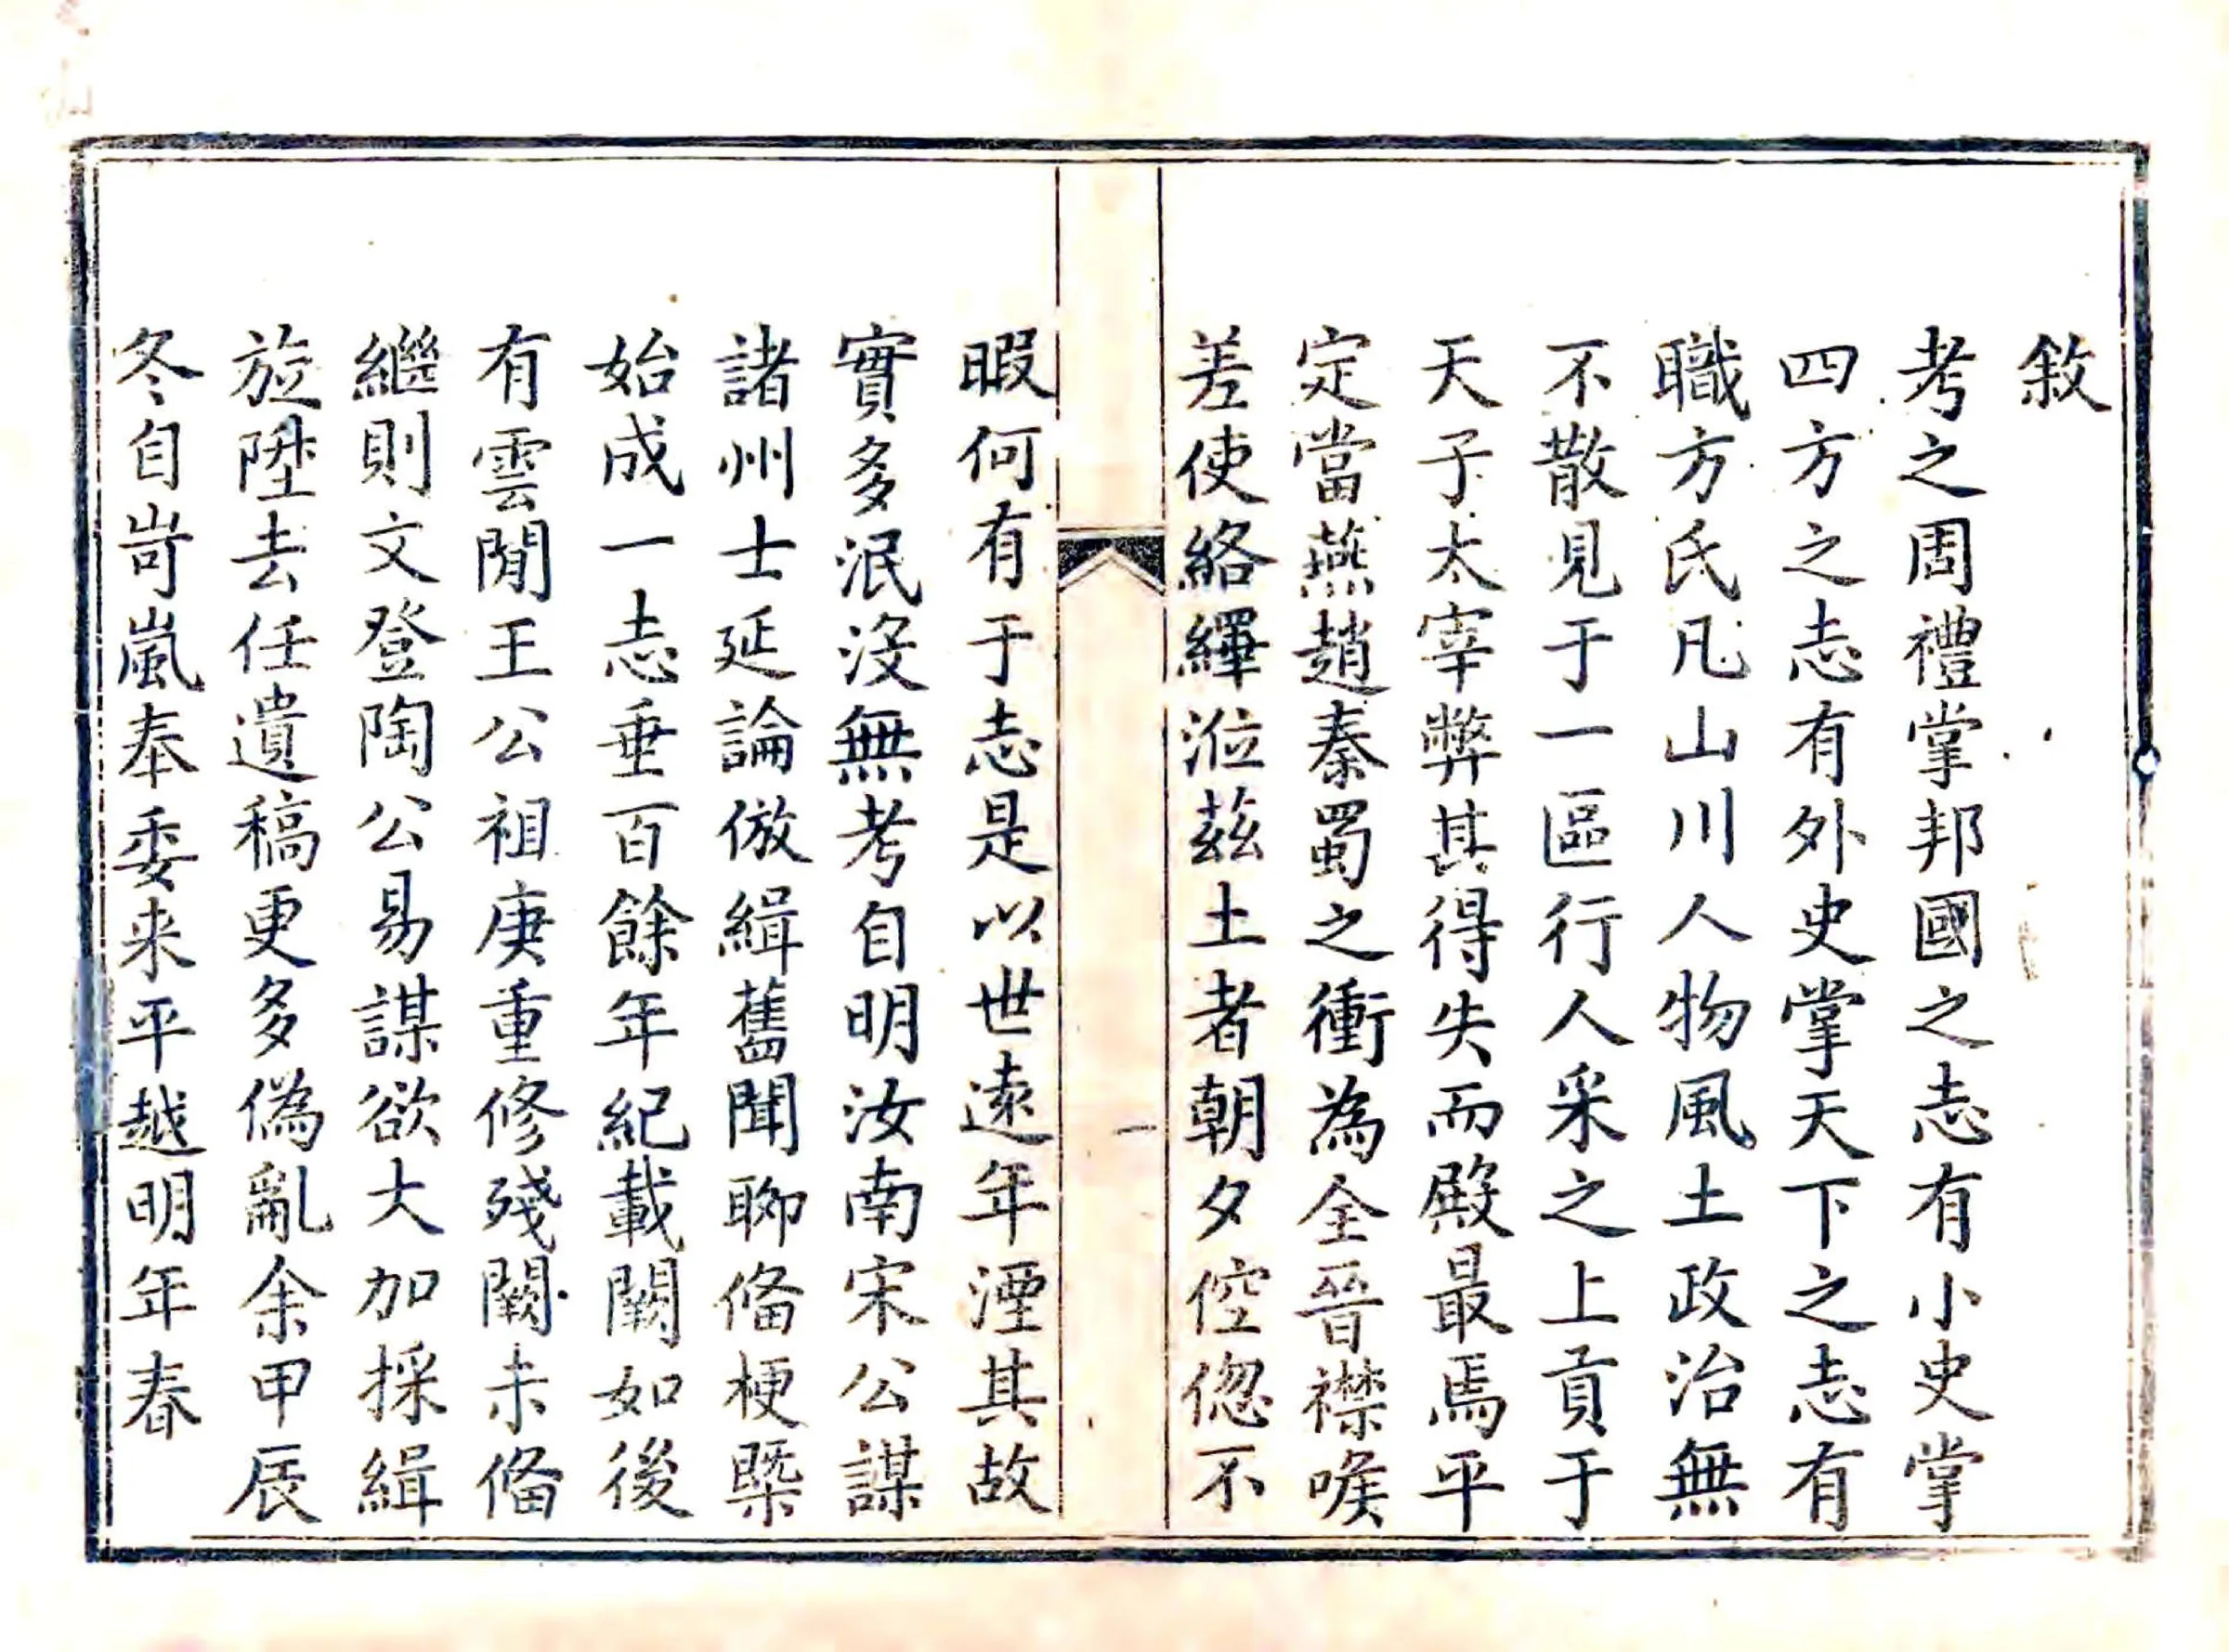 敘
考之周禮掌邦國之志有小史掌
四方之志有外史掌天下之志有
職方氏凡山川人物風土政治無
不散見于一區行人采之上貢于
天子太宰弊其得失而殿最焉平
定當燕趙秦蜀之衝為全晉襟喉
差使絡繹涖茲土者朝夕倥傯不
一
暇何有于志是以世遠年湮其故
實多泯沒無考自明汝南宋公謀
諸州士延論倣緝舊聞聊俻梗槩
始成一志垂百餘年紀載闕如後
有雲間王公祖庚重修殘闕未俻
繼則文登陶公易謀欲大加採緝
旋陞去任遺稿更多偽亂余甲辰
冬自岢嵐奉委来平越明年春